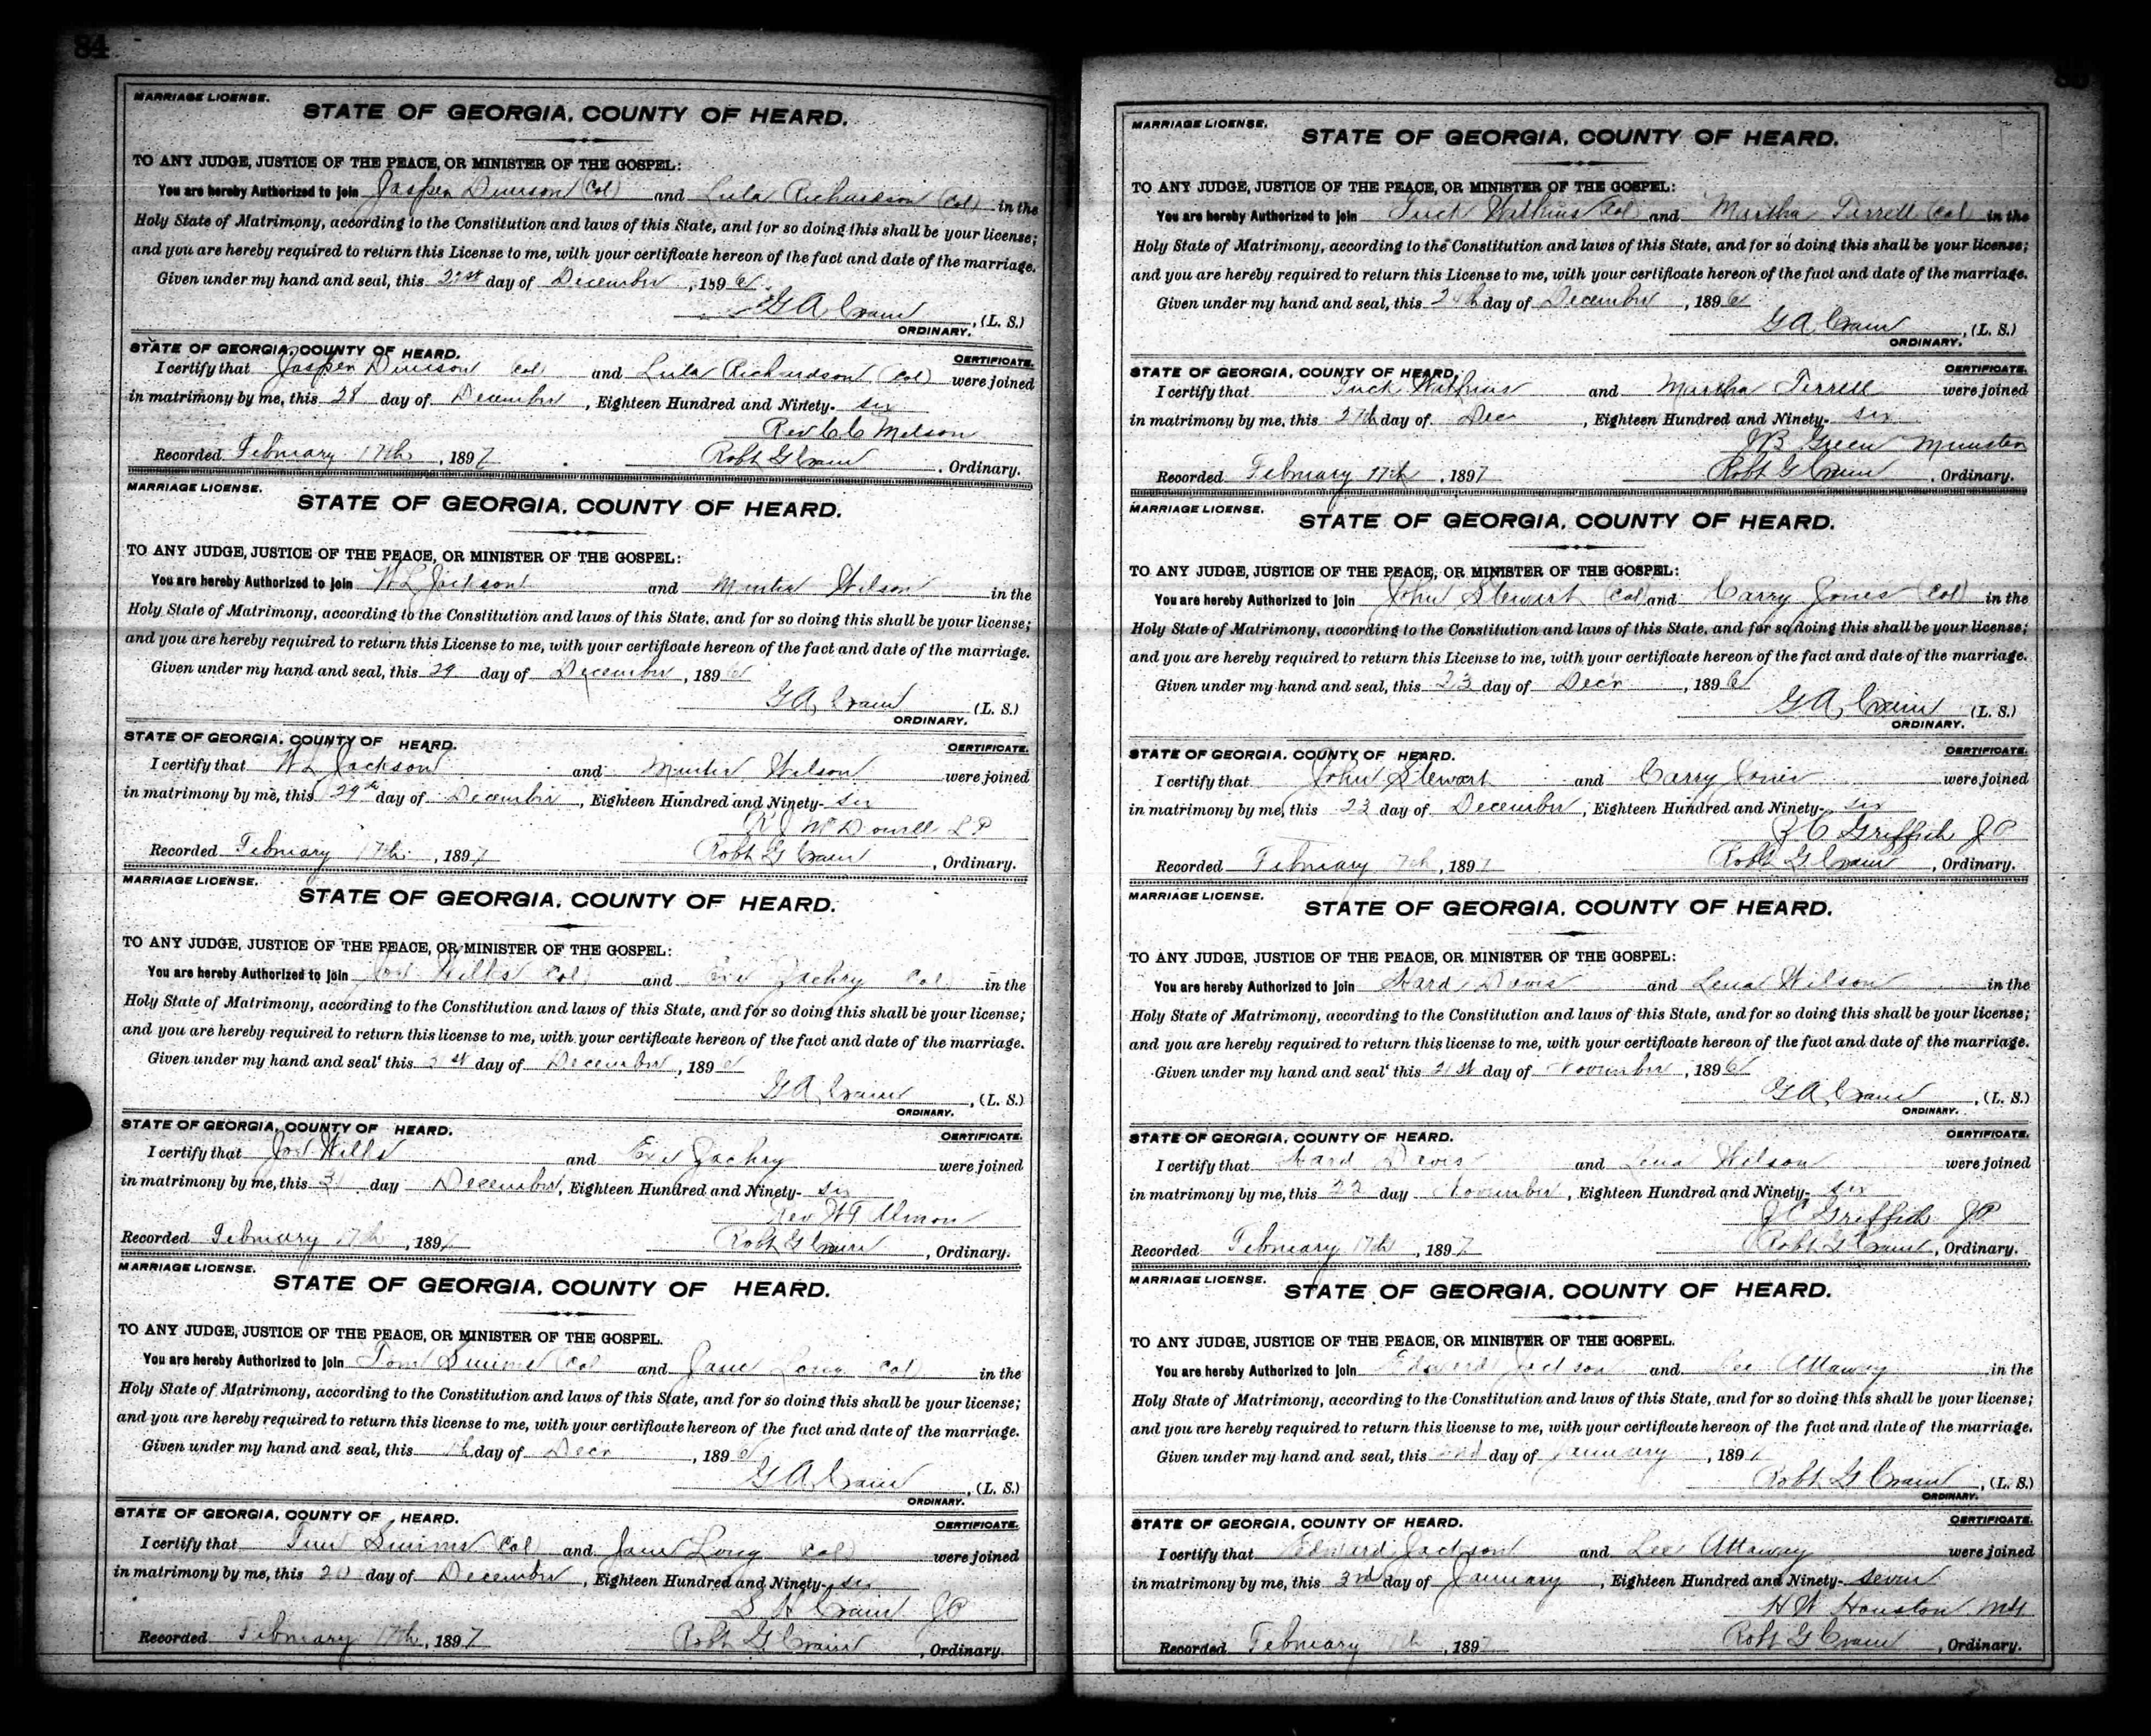 84
MARRIAGE LICENSE.
STATE OF GEORGIA, COUNTY OF HEARD.
TO ANY JUDGE, JUSTICE OF THE PEACE, OR MINISTER OF THE GOSPEL:
You are hereby Authorized to join Jasper (Col) and Lula Richardson (Col) in the
Holy State of Matrimony, according to the Constitution and laws of this State, and for so doing this shall be your license;
and you are hereby required to return this License to me, with your certificate hereon of the fact and date of the marriage.
Given under my hand and seal, this day of December, 1896.
G A Crain, (L. S.)
ORDINARY.
STATE OF GEORGIA, COUNTY OF HEARD. CERTIFICATE.
I certify that Jasper (Col) and Lula Richardson (Col) were joined
in matrimony by me, this 28 day of December, Eighteen Hundred and Ninety-six
Rev C C Melson
Recorded February 17th, 1897 Robt G Crain, Ordinary.
MARRIAGE LICENSE.
STATE OF GEORGIA, COUNTY OF HEARD.
TO ANY JUDGE, JUSTICE OF THE PEACE, OR MINISTER OF THE GOSPEL:
You are hereby Authorized to join W L Jackson and Wilson in the
Holy State of Matrimony, according to the Constitution and laws of this State, and for so doing this shall be your license;
and you are hereby required to return this License to me, with your certificate hereon of the fact and date of the marriage.
Given under my hand and seal, this 29 day of December, 1896
G A Crain (L. S.)
ORDINARY.
STATE OF GEORGIA, COUNTY OF HEARD. CERTIFICATE.
I certify that W L Jackson and Wilson were joined
in matrimony by me, this 29th day of December, Eighteen Hundred and Ninety-six
R J McDowell L P
Recorded February 17th, 1897 Robt G Crain, Ordinary.
MARRIAGE LICENSE.
STATE OF GEORGIA, COUNTY OF HEARD.
TO ANY JUDGE, JUSTICE OF THE PEACE, OR MINISTER OF THE GOSPEL:
You are hereby Authorized to join (Col) and Zachry Col in the
Holy State of Matrimony, according to the Constitution and laws of this State, and for so doing this shall be your license;
and you are hereby required to return this license to me, with your certificate hereon of the fact and date of the marriage.
Given under my hand and seal' this day of December, 1896
G A Crain, (L. S.)
ORDINARY.
STATE OF GEORGIA, COUNTY OF HEARD. CERTIFICATE.
I certify that and Zachry were joined
in matrimony by me, this day December, Eighteen Hundred and Ninety-six
Rev W T Almon
Recorded February 17th, 1897 Robt G Crain, Ordinary.
MARRIAGE LICENSE.
STATE OF GEORGIA, COUNTY OF HEARD.
TO ANY JUDGE, JUSTICE OF THE PEACE, OR MINISTER OF THE GOSPEL.
You are hereby Authorized to join Simms (Col and Jane Long (Col) in the
Holy State of Matrimony, according to the Constitution and laws of this State, and for so doing this shall be your license;
and you are hereby required to return this license to me, with your certificate hereon of the fact and date of the marriage.
Given under my hand and seal, this day of Decr, 1896
G A Crain, (L. S.)
ORDINARY.
STATE OF GEORGIA, COUNTY OF HEARD. CERTIFICATE.
I certify that Simms (Col) and Jane Long (Col) were joined
in matrimony by me, this 20 day of December, Eighteen Hundred and Ninety-six
S H Crain J P
Recorded February 17th, 1897 Robt G Crain, Ordinary.
MARRIAGE LICENSE.
STATE OF GEORGIA, COUNTY OF HEARD.
TO ANY JUDGE, JUSTICE OF THE PEACE, OR MINISTER OF THE GOSPEL:
You are hereby Authorized to join Tuck Watkins (Col) and Martha Terrell (Col) in the
Holy State of Matrimony, according to the Constitution and laws of this State, and for so doing this shall be your license;
and you are hereby required to return this License to me, with your certificate hereon of the fact and date of the marriage.
Given under my hand and seal, this day of December, 1896
G A Crain, (L. S.)
ORDINARY.
STATE OF GEORGIA, COUNTY OF HEARD. CERTIFICATE.
I certify that Tuck Watkins and Martha Terrell were joined
in matrimony by me, this 27th day of Dec, Eighteen Hundred and Ninety-six
J B Green Minister
Recorded February 17th, 1897 Robt G Crain, Ordinary.
MARRIAGE LICENSE.
STATE OF GEORGIA, COUNTY OF HEARD.
TO ANY JUDGE, JUSTICE OF THE PEACE, OR MINISTER OF THE GOSPEL:
You are hereby Authorized to join John Stewart (Col) and Carry Jones (Col) in the
Holy State of Matrimony, according to the Constitution and laws of this State, and for so doing this shall be your license;
and you are hereby required to return this License to me, with your certificate hereon of the fact and date of the marriage.
Given under my hand and seal, this 23 day of Decr, 1896
G A Crain (L. S.)
ORDINARY.
STATE OF GEORGIA, COUNTY OF HEARD. CERTIFICATE.
I certify that John Stewart and Carry Jones were joined
in matrimony by me, this 23 day of December, Eighteen Hundred and Ninety-six
Griffith J P
Recorded February 17th, 1897 Robt G Crain, Ordinary.
MARRIAGE LICENSE.
STATE OF GEORGIA, COUNTY OF HEARD.
TO ANY JUDGE, JUSTICE OF THE PEACE, OR MINISTER OF THE GOSPEL:
You are hereby Authorized to join Hard Davis and Lena Wilson in the
Holy State of Matrimony, according to the Constitution and laws of this State, and for so doing this shall be your license;
and you are hereby required to return this license to me, with your certificate hereon of the fact and date of the marriage.
Given under my hand and seal' this 21st day of November, 1896
G A Crain, (L. S.)
ORDINARY.
STATE OF GEORGIA, COUNTY OF HEARD. CERTIFICATE.
I certify that Hard Davis and Lena Wilson were joined
in matrimony by me, this 22 day November, Eighteen Hundred and Ninety-six
Griffith J P
Recorded February 17th, 1897 Robt G Crain, Ordinary.
MARRIAGE LICENSE.
STATE OF GEORGIA, COUNTY OF HEARD.
TO ANY JUDGE, JUSTICE OF THE PEACE, OR MINISTER OF THE GOSPEL.
You are hereby Authorized to join Edward Jackson and Lee Attaway in the
Holy State of Matrimony, according to the Constitution and laws of this State, and for so doing this shall be your license;
and you are hereby required to return this license to me, with your certificate hereon of the fact and date of the marriage.
Given under my hand and seal, this 2nd day of January, 1897
Robt G Crain, (L. S.)
ORDINARY.
STATE OF GEORGIA, COUNTY OF HEARD. CERTIFICATE.
I certify that Edward Jackson and Lee Attaway were joined
in matrimony by me, this 3rd day of January, Eighteen Hundred and Ninety-seven
H W Houston
Recorded February, 1897 Robt G Crain, Ordinary.